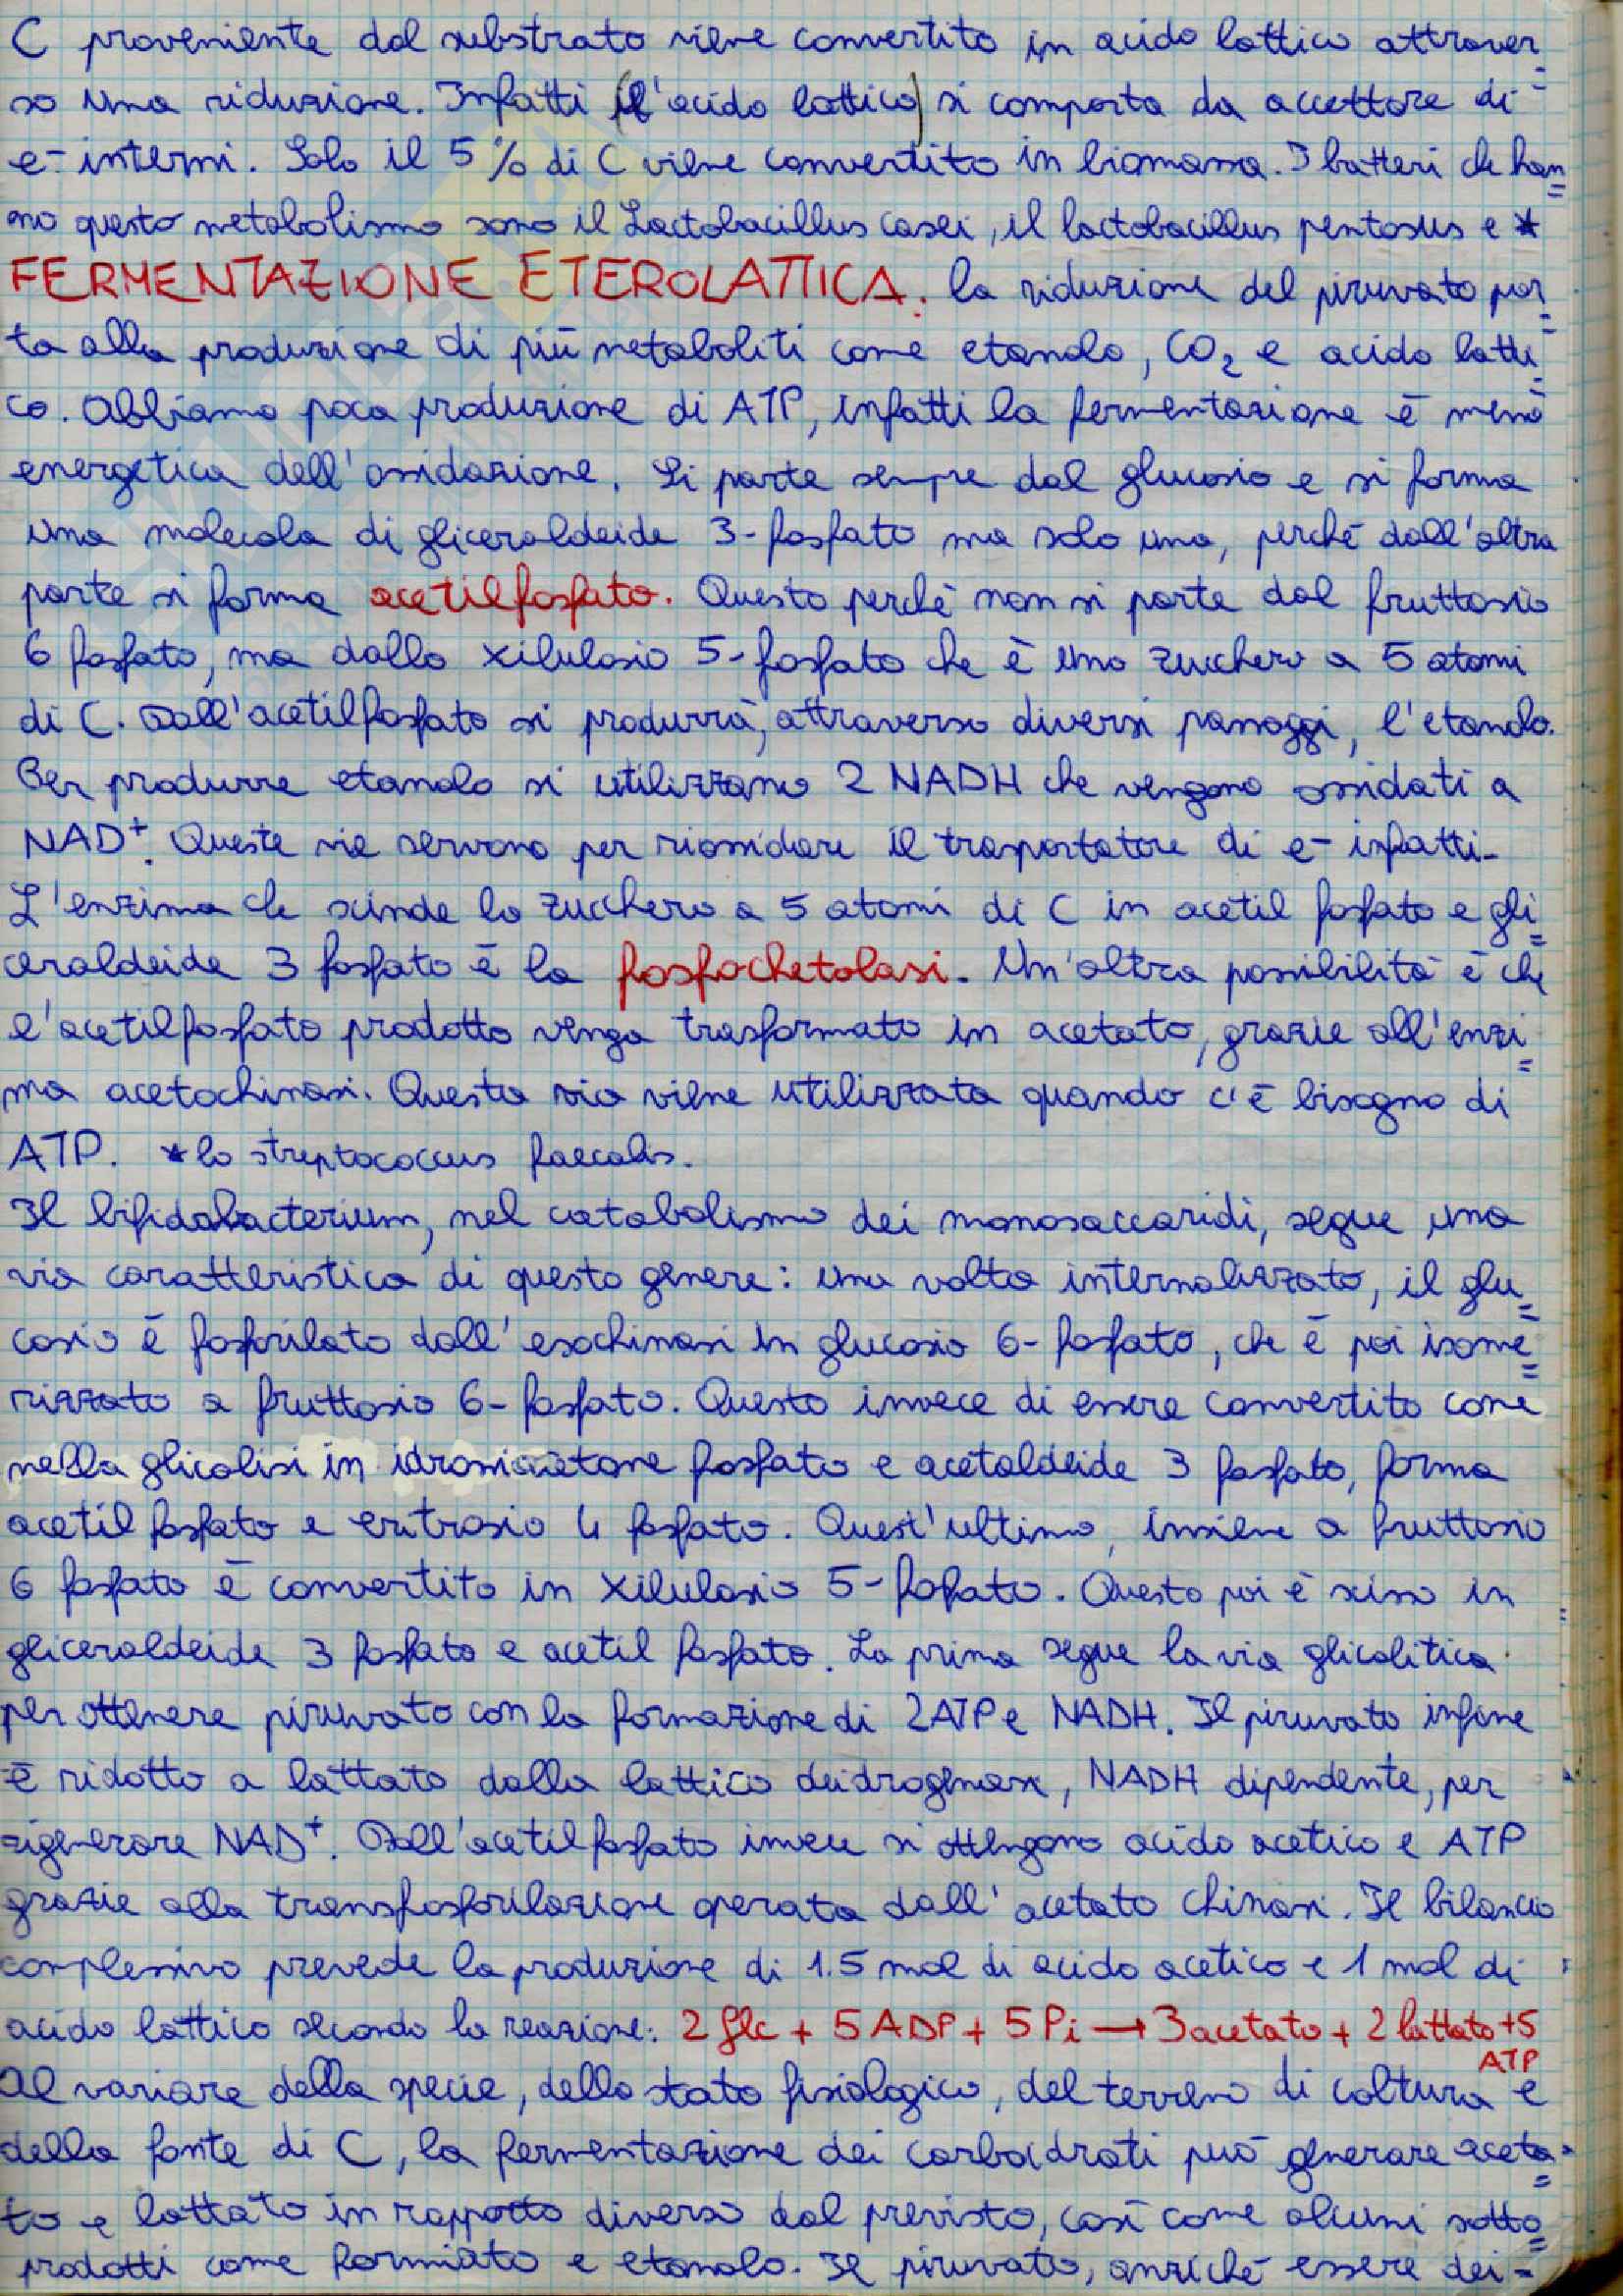 C proveniente dal substrato viene convertito in acido lattico attraver=
so una riduzione. Infatti (l'acido lattico) si comporta da accettore di
e- interni. Solo il 5% di C viene convertito in biomassa. I batteri che han=
no questo metabolismo sono il Lactobacillus casei, il lactobacillus pentosus e *
FERMENTAZIONE ETEROLATTICA. la riduzione del piruvato por=
ta alla produzione di più metaboliti come etanolo, CO2 e acido latti=
co. Abbiamo poca produzione di ATP, infatti la fermentazione è meno
energetica dell'ossidazione. Si parte sempre dal glucosio e si forma
una molecola di gliceraldeide 3-fosfato ma solo una, perché dall'altra
parte si forma acetilfosfato. Questo perché non si parte dal fruttosio
6 fosfato, ma dallo xilulosio 5-fosfato che è uno zucchero a 5 atomi
di C. Dall'acetilfosfato si produrrà, attraverso diversi passaggi, l'etanolo.
Per produrre etanolo si utilizzano 2 NADH che vengono ossidati a
NAD+. Queste vie servono per riossidare il trasportatore di e- infatti.
L'enzima che scinde lo zucchero a 5 atomi di C in acetil fosfato e gli=
ceraldeide 3 fosfato è la fosfochetolasi. Un'altra possibilità è che
l'acetilfosfato prodotto venga trasformato in acetato, grazie all'enzi=
ma acetochinasi. Questa via viene utilizzata quando c'è bisogno di
ATP. *lo streptococcus faecalis.
Il bifidobacterium, nel catabolismo dei monosaccaridi, segue una
via caratteristica di questo genere: una volta internalizzato, il glu=
cosio è fosforilato dall'esochinasi in glucosio 6-fosfato, che è poi isome=
rizzato a fruttosio 6-fosfato. Questo invece di essere convertito come
nella glicolisi in idrossiacetone fosfato e acetaldeide 3 fosfato, forma
acetil fosfato e eritrosio 4 fosfato. Quest'ultimo, insieme a fruttosio
6 fosfato è convertito in xilulosio 5-fosfato. Questo poi è scisso in
gliceraldeide 3 fosfato e acetil fosfato. La prima segue la via glicolitica
per ottenere piruvato con la formazione di 2ATP e NADH. Il piruvato infine
è ridotto a lattato dalla lattico deidrogenasi, NADH dipendente, per
rigenerare NAD+. Dall'acetilfosfato invece si ottengono acido acetico e ATP
grazie alla transfosforilazione operata dall'acetato chinasi. Il bilancio
complessivo prevede la produzione di 1.5 mol di acido acetico e 1 mol di
acido lattico secondo la reazione: 2 glc + 5 ADP + 5 Pi → 3 acetato + 2 lattato + 5
ATP
Al variare della specie, dello stato fisiologico, del terreno di coltura e
della fonte di C, la fermentazione dei carboidrati può generare aceta=
to e lattato in rapporto diverso dal previsto, così come alcuni sotto=
prodotti come formiato e etanolo. Il piruvato, anziché essere dei=